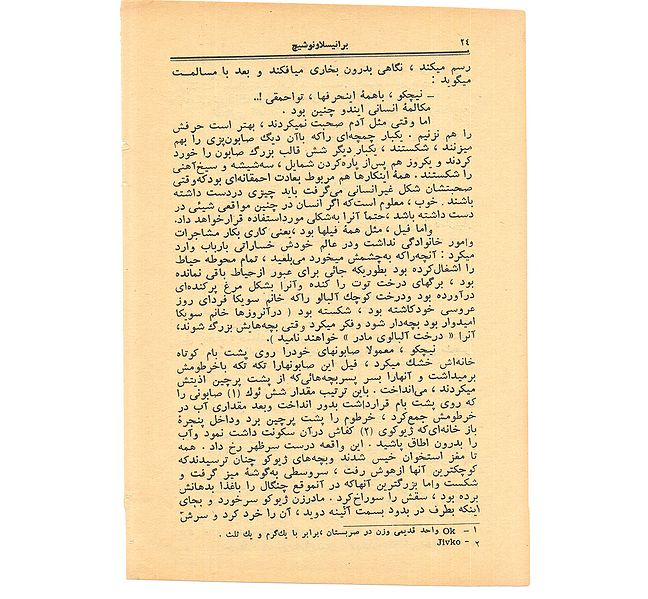 ۲۴
برانیسلاونوشیچ
رسم میکند ، نگاهی بدرون بخاری میافکند و بعد با مسالمت
میگوید :
– نیچکو ، باهمهٔ اینحرفها ، تواحمقی !..
مکالمهٔ انسانی ایندو چنین بود .
اما وقتی مثل آدم صحبت نمیکردند ، بهتر است حرفش
را هم نزنیم . یکبار چمچه‌ای راکه باآن دیگ صابون‌پزی را بهم
میزنند ، شکستند ، یکبار دیگر شش قالب بزرگ صابون را خورد
کردند و یکروز هم پس‌از پاره‌کردن شمایل ، سه‌شیشه و سیخ‌آهنی
را شکستند . همهٔ اینکارها هم مربوط بعادت احمقانه‌ای بودکه‌وقتی
صحبتشان شکل غیرانسانی می‌گرفت باید چیزی دردست داشته
باشند . خوب ، معلوم است‌که اگر انسان در چنین مواقعی شیئی در
دست داشته باشد ،حتماً آنرا به‌شکلی مورداستفاده قرارخواهد داد.
واما فیل ، مثل همهٔ فیلها بود ،یعنی کاری بکار مشاجرات
وامور خانوادگی نداشت ودر عالم خودش خساراتی بارباب وارد
میکرد : آنچه‌راکه به‌چشمش میخورد می‌بلعید ، تمام محوطه حیاط
را اشغال‌کرده بود بطوریکه جائی برای عبور ازحیاط باقی نمانده
بود ، برگهای درخت توت را کنده وآنرا بشکل مرغ پرکنده‌ای
درآورده بود ودرخت کوچك آلبالو راکه خانم سویکا فردای روز
عروسی خودکاشته بود ، شکسته بود ( درآنروزها خانم سویکا
امیدوار بود بچه‌دار شود وفکر میکرد وقتی بچه‌هایش بزرگ شوند،
آنرا « درخت آلبالوی مادر » خواهند نامید ).
نیچکو ، معمولا صابونهای خودرا روی پشت بام کوتاه
خانه‌اش خشك میکرد ، فیل این صابونهارا تکه تکه باخرطومش
برمیداشت و آنهارا بسر پسربچه‌هائی‌که از پشت پرچین اذیتش
میکردند ، می‌انداخت . باین ترتیب مقدار شش ئوك (۱) صابونی را
که روی پشت بام قرارداشت بدور انداخت وبعد مقداری آب در
خرطومش جمع‌کرد ، خرطوم را پشت پرچین برد وداخل پنجرهٔ
باز خانه‌ای‌که ژیوکوی (۲) کفاش درآن سکونت داشت نمود وآب
را بدرون اطاق پاشید . این واقعه درست سرظهر رخ داد . همه
تا مغز استخوان خیس شدند وبچه‌های ژیوکو چنان ترسیدندکه
کوچکترین آنها ازهوش رفت ، سروسطی به‌گوشهٔ میز گرفت و
شکست واما بزرگترین آنهاکه در آنموقع چنگال را باغذا بدهانش
برده بود ، سقش را سوراخ‌کرد . مادرزن ژیوکو سرخورد و بجای
اینکه بطرف در بدود بسمت آئینه دوید ، آن را خرد کرد و سرش
۱ – Ok واحد قدیمی وزن در صربستان ،برابر با یك‌گرم و یك ثلث .
۲ – Jivko